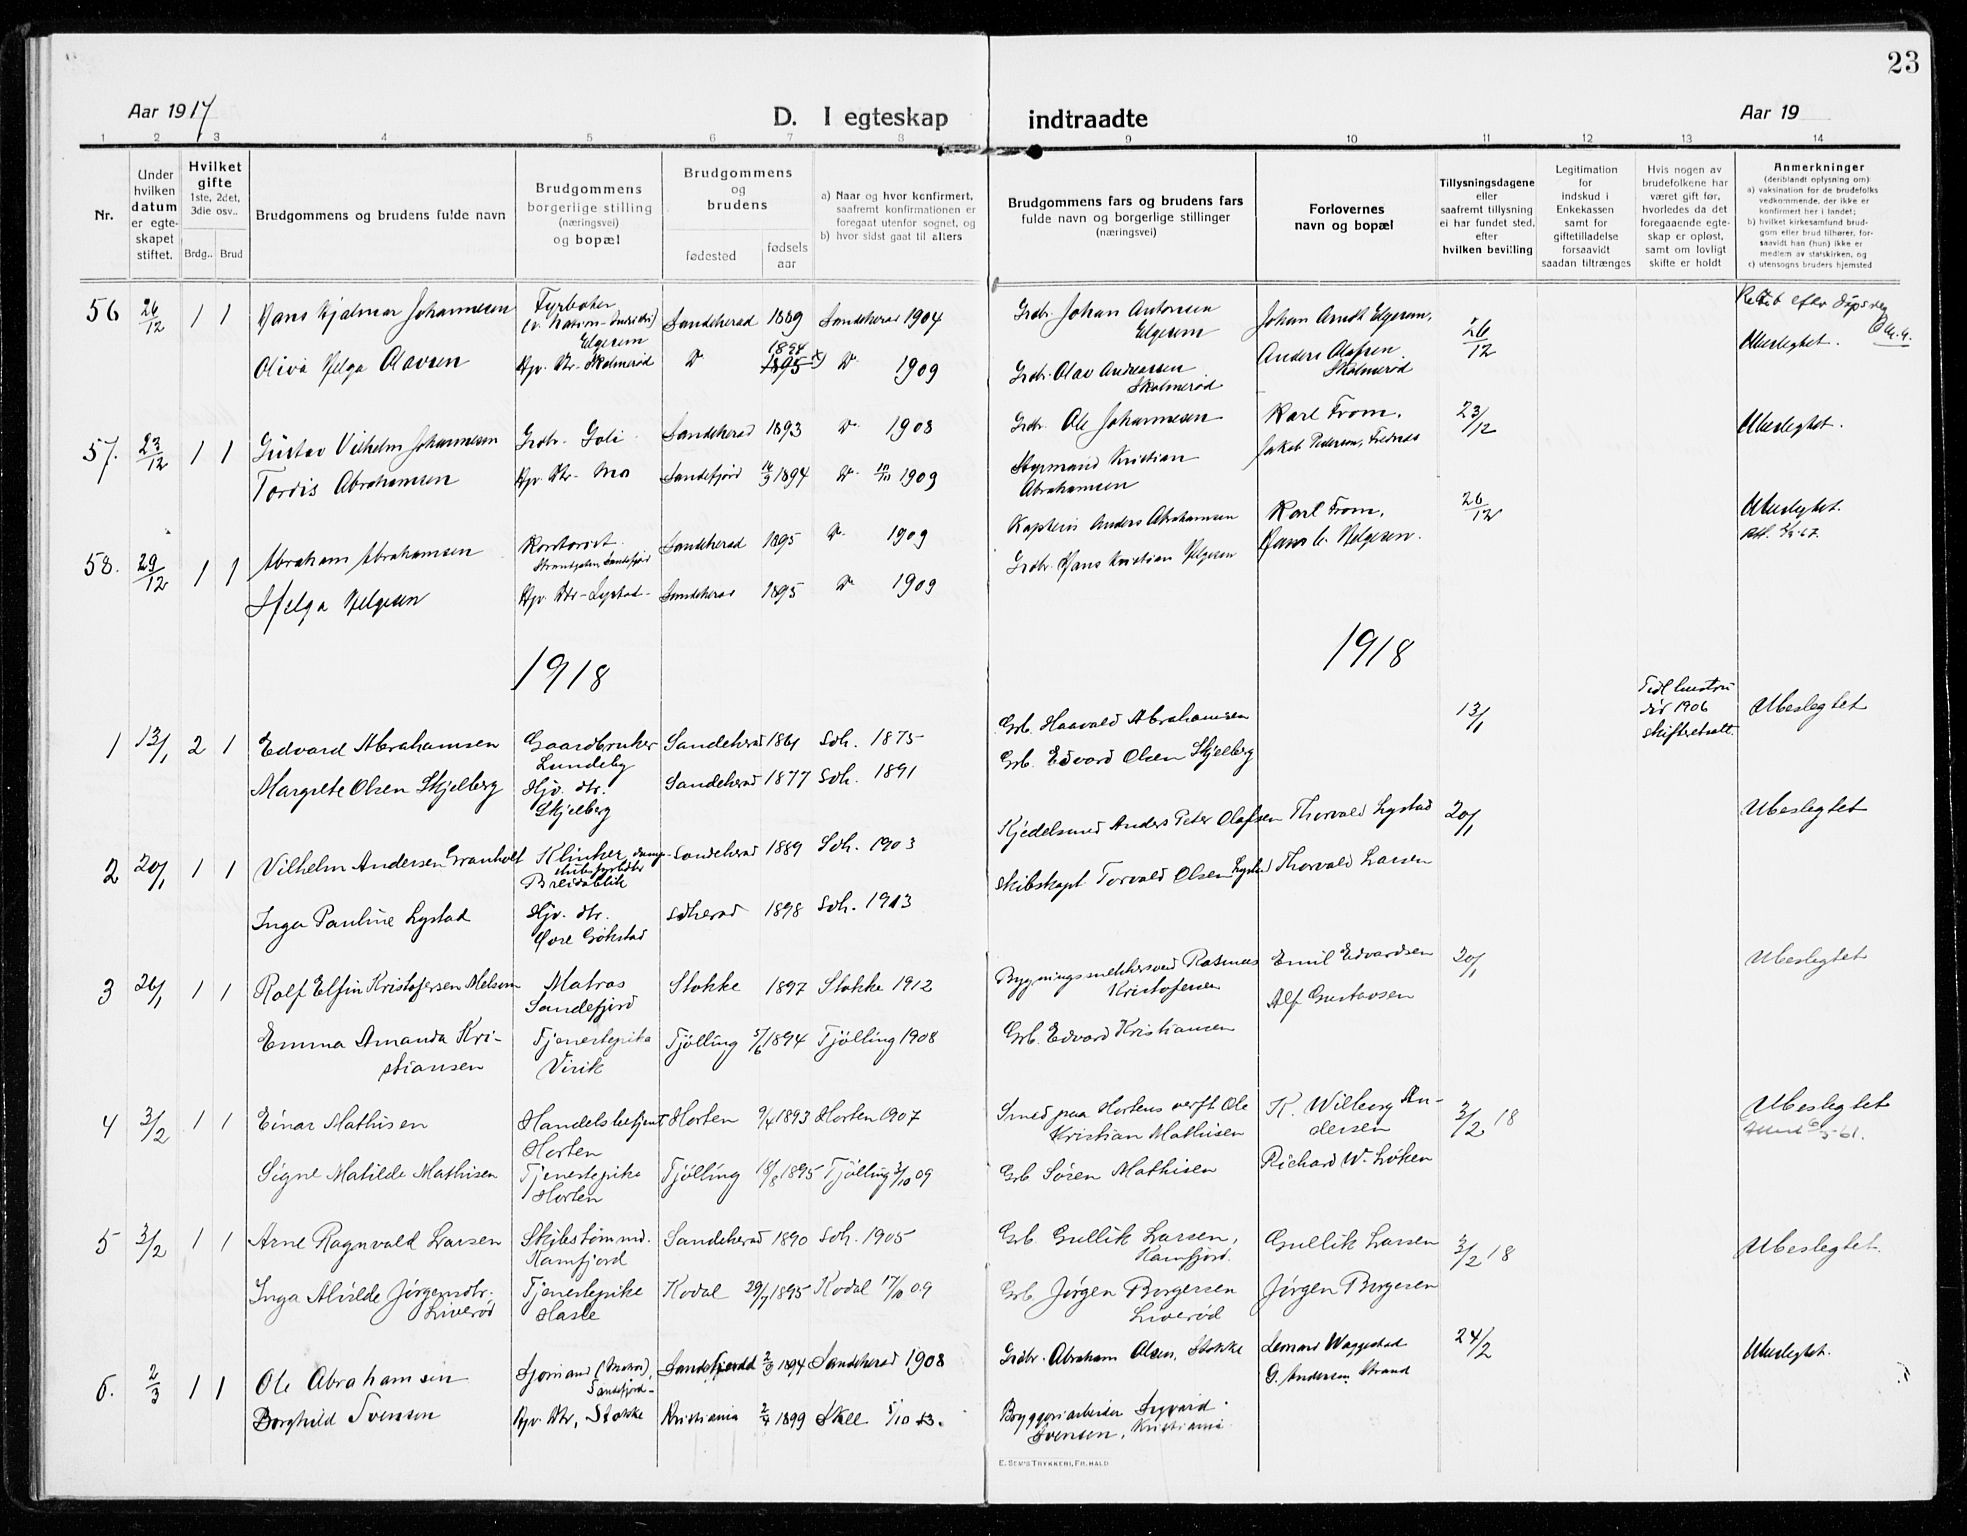 23
Aar 1917
D. I egteskap indtraadte
Aar 19
1 2 3 4 5 6 7 8 9 10 11 12 13 14
Nr.
Under hvilken datum er egteskapet stiftet.
Hvilket gifte
1ste, 2det, 3die osv..
Brdg.. Brud
Brudgommens og brudens fulde navn
Brudgommens borgerlige stilling (næringsvei) og bopæl
Brudgommens og brudens
fødested
fødsels aar
a) Naar og hvor konfirmert, saafremt konfirmationen er foregaat utenfor sognet, og
b) hvor sidst gaat til alters
Brudgommens fars og brudens fars fulde navn og borgerlige stillinger (næringsvei)
Forlovernes navn og bopæl
Tillysningsdagene eller saafremt tillysning ei har fundet sted, efter hvilken bevilling
Legitimation for indskud i Enkekassen samt for giftetilladelse forsaavidt saadan tiltrænges
Hvis nogen av brudefolkene har været gift før, hvorledes da det foregaaende egteskap er opløst, samt om lovligt skifte er holdt
Anmerkninger
(deriblandt oplysning om):
a) vaksination for de brudefolks vedkommende, der ikke er konfirmert her i landet;
b) hvilket kirkesamfund brudgom eller brud tilhører, forsaavidt han (hun) ikke er medlem av statskirken, og
c) utensogns bruders hjemsted
56 26/12 1 1 Hans Hjalmar Johannesen Fyrbøter Elgesem Sandeherad 1889 Sandeherad 1904 Grdbr. Johan Antonsen Elgesem Johan Arndt Elgesem, 26/12 Ubeslegtet.
Oliva Helga Olavsen Hjv. dtr. Skolmerød Do 1894 1895 Do 1909 Grdbr. Olav Andreassen Skolmerød Anders Olafsen Skolmerød
57. 23/12 1 1 Gustav Vilhelm Johannesen Grdbr. Goli Sandeherad 1893 Do 1908 Grdbr. Ole Johannesen Karl From, 23/12 Ubeslegtet.
Tordis Abrahamsen Hjv. dtr. Mo Sandefjord 1894 Do 1909 Styrmand Kristian Abrahamsen Jakob Pedersen, Frednes
58. 29/12 1 1 Abraham Abrahamsen Kontorist Sandefjord Sandeherad 1895 Do 1909 Kaptein Anders Abrahamsen Karl From, 26/12 Ubeslegtet.
Helga Helgesen Hjv. dtr. Lystad Sandeherad 1895 Do 1909 Grdbr. Hans Kristian Helgesen Hans C. Helgesen.
1918 1918
1 13/1 2 1 Edvard Abrahamsen Gaardbruker Lundeby Sandeherad 1861 Sdh. 1875 Grb. Haavald Abrahamsen 13/1 Tidl hustru død 1906 skifteretsatt. Ubeslegtet
Margrete Olsen Skjelberg Hjv. dtr. Skjelberg Sandeherad 1877 Sdh. 1891 Grb. Edvard Olsen Skjelberg
2 20/1 1 1 Vilhelm Andersen Granholt Klinker Breidablik Sandeherad 1889 Sdh. 1903 Kjedelsmed Anders Peter Olafsen Thorvald Lystad 20/1 Ubeslegtet
Inga Pauline Lystad Hjv. dtr. Øvre Gokstad Sdherad 1898 Sdh. 1913 Skibskapt. Torvald Olsen Lystad Thorvald Larsen
3 26/1 1 1 Rolf Elfin Kristofersen Melsom Matros Sandefjord Stokke 1897 Stokke 1912 Rasmus Kristofersen Emil Edvardsen 20/1 Ubeslegtet
Emma Amanda Kristiansen Tjenestepike Virik Tjölling 5/6 1894 Tjölling 1908 Grb. Edvard Kristiansen Alf Gustavsen
4 3/2 1 1 Einar Mathisen Handelsbetjent Horten Horten 9/4 1893 Horten 1907 Smed paa Hortens verft Ole Kristian Mathisen K. Willberg Andersen 3/2 18 Ubeslegtet
Signe Matilde Mathisen Tjenestepike Horten Tjölling 18/8 1895 Tjölling 3/10 09 Grb Søren Mathisen Richard W. Løken
5 3/2 1 1 Arne Ragnvald Larsen Skibstømmd. Kamfjord Sandeherad 1890 Sdh. 1905 Grb. Gullik Larsen, Kamfjord. Gullik Larsen 3/2 18 Ubeslegtet.
Inga Alvilde Jørgensdtr. Liverød Tjenestepike Hasle Kodal 29/7 1895 Kodal 17/10 09 Grb Jørgen Borgersen Liverød Jørgen Borgesen
6. 2/3 1 1 Ole Abrahamsen Sjømand (Matros), Sandefjord Sandefjord 1894 Sandeherad 1908 Grdbr. Abraham Olsen, Stokke Leonard Waggestad 24/2 Ubeslegtet.
Borghild Svensen Hjv. dtr, Stokke Kristiania 1899 5/10 13. Bryggeriarbeider Sigvard Svensen, Kristiania G. Andersen Strand
E. SEM'S TRYKKERI, FR.HALD